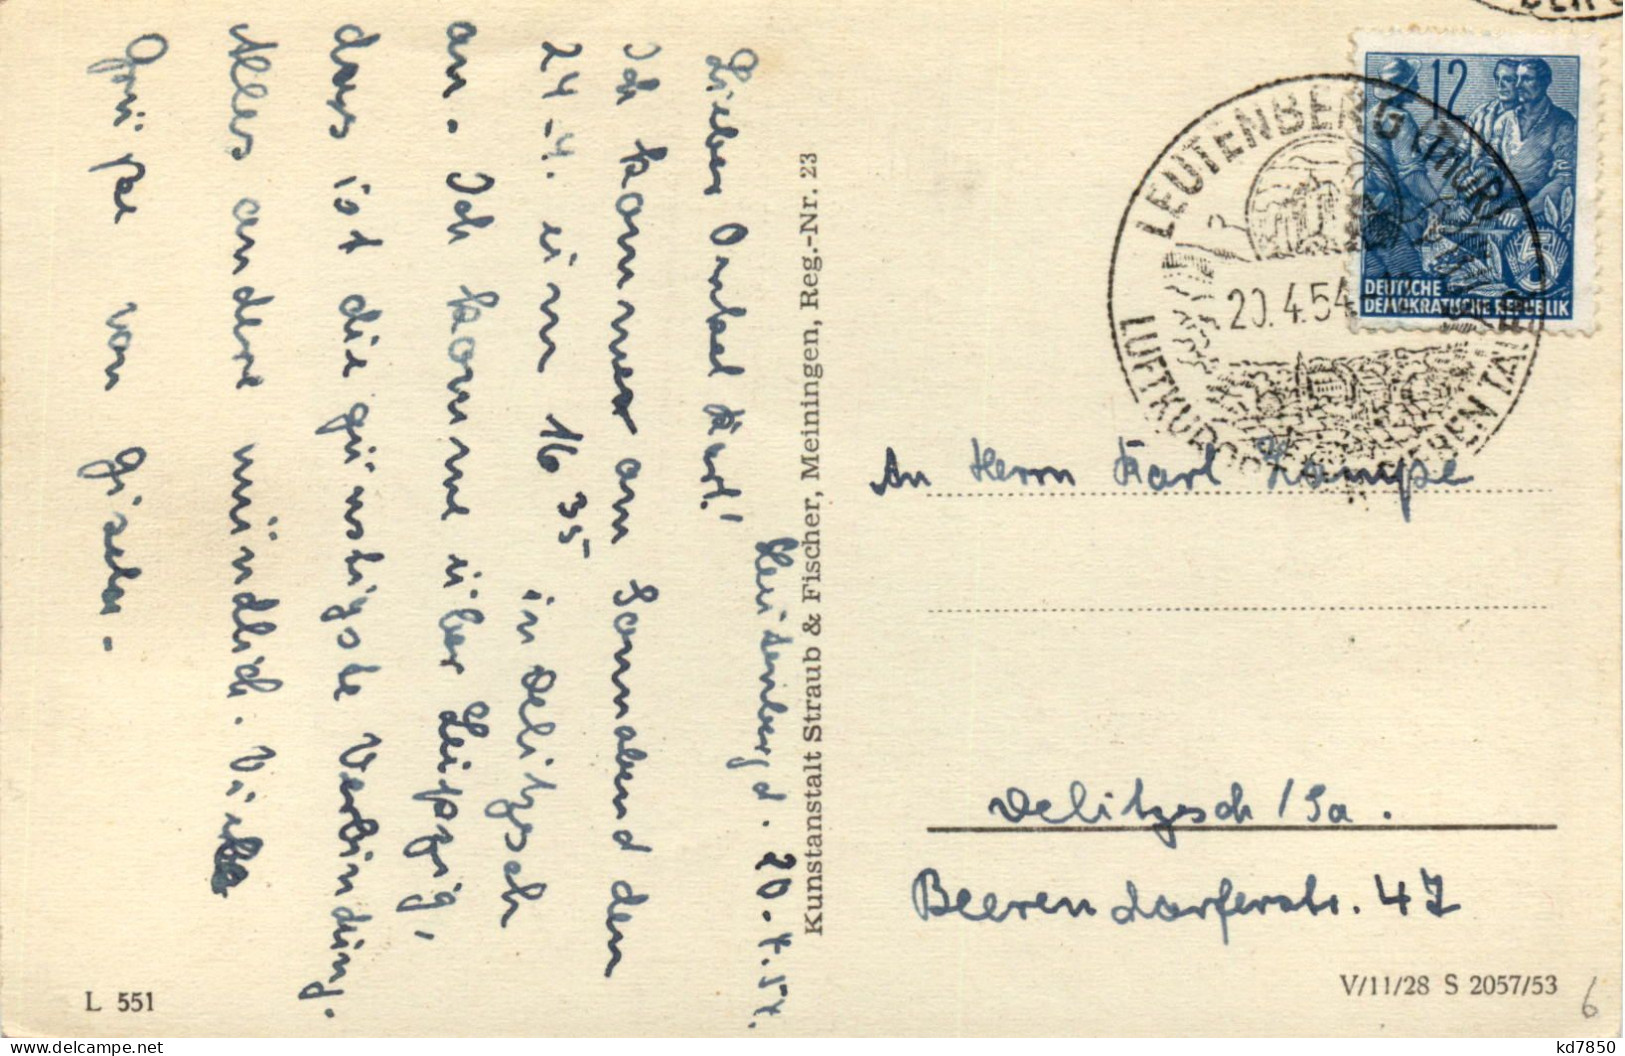 Leutenberg, d. 20.4.54.
Lieber Onkel Karl!
Ich komme am Sonnabend den
24.4. um 16 35 in Delitzsch
an. Ich komme über Leipzig,
das ist die günstigste Verbindung.
Alles andere mündlich. Viele
Grüße von Gisela.
Kunstanstalt Straub & Fischer, Meiningen, Reg.-Nr. 23
L 551
LEUTENBERG (THÜR)
20.4.54
LUFTKURORT
12
5
DEUTSCHE
DEMOKRATISCHE REPUBLIK
An Herrn Karl Kampe
Delitzsch / Sa.
Beerendorferstr. 47
V/11/28 S 2057/53
6
kd7850